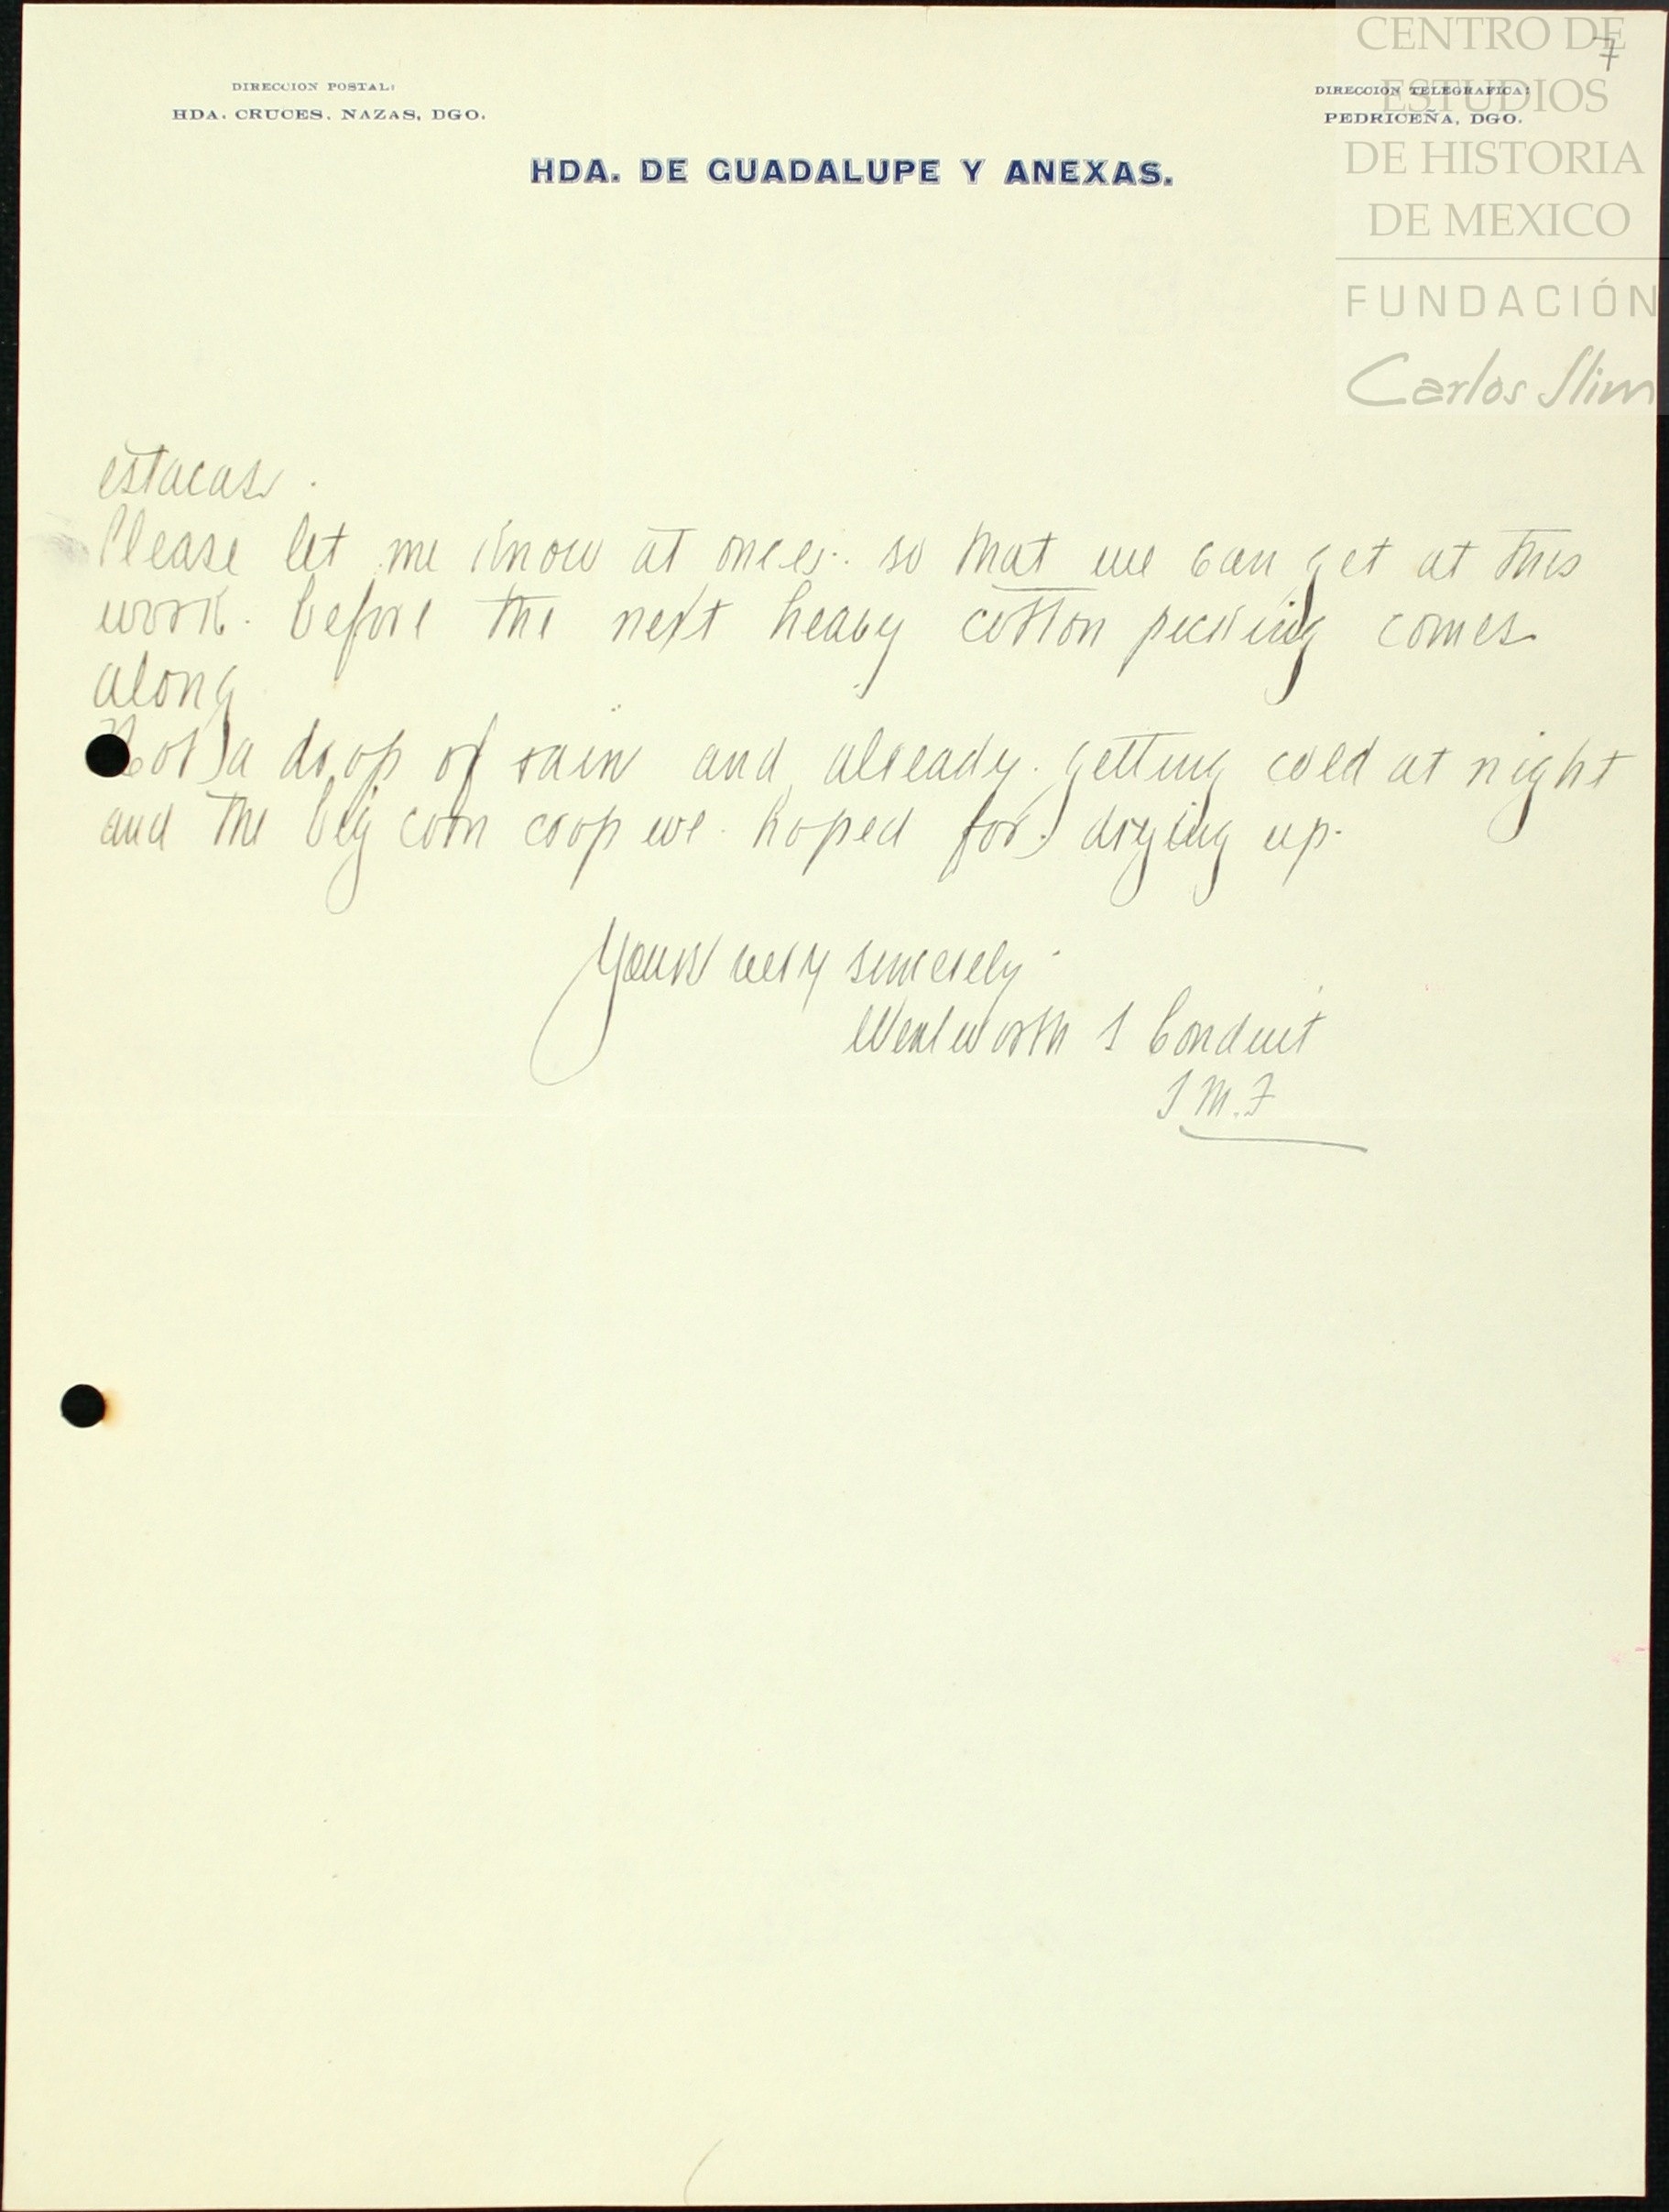 CENTRO DE
ESTUDIOS
DE HISTORIA
DE MEXICO
FUNDACIÓN
Carlos Slim
7
DIRECCION POSTAL:
HDA. CRUCES, NAZAS, DGO.
DIRECCION TELEGRAFICA:
PEDRICEÑA, DGO.
HDA. DE GUADALUPE Y ANEXAS.
estacas.
Please let me know at once. so that we can get at this
work. before the next heavy cotton picking comes
along
Not a drop of rain and already. getting cold at night
and the big corn crop we. hoped for. drying up.
Yours very sincerely
Wentworth S Conduit
S M. F